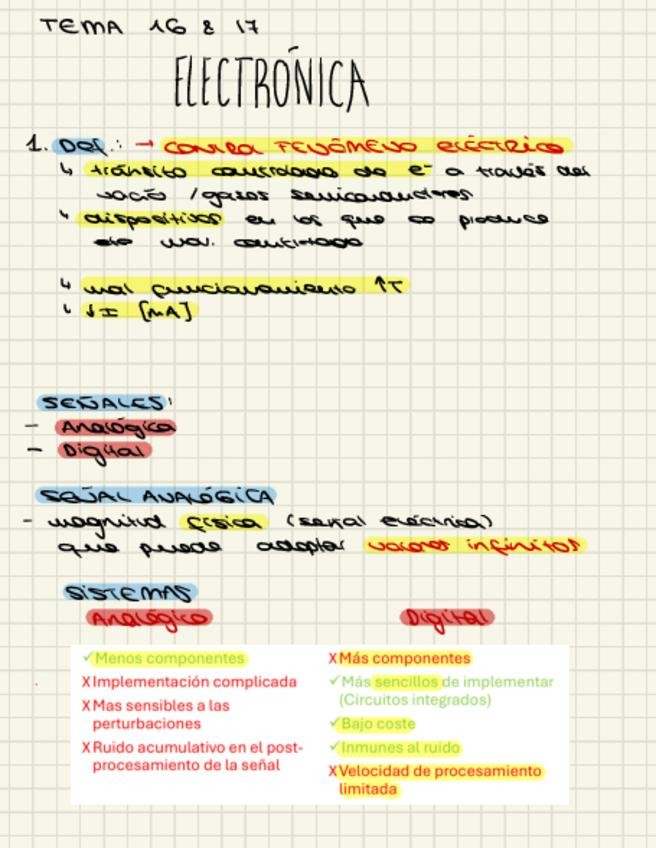 TEMA 16 & 17
ELECTRÓNICA
1. Def.: → CONTROL FENÓMENO ELÉCTRICO
↳ tránsito controlado de e⁻ a través del
vacío / gases semiconductores
↳ dispositivos en los que se produce
mov. controlado
↳ mal funcionamiento ↑T
↳ ↓I [mA]
SEÑALES:
- Analógica
- Digital
SEÑAL ANALÓGICA
- magnitud física (señal eléctrica)
que puede adoptar valores infinitos
SISTEMAS
Analógico Digital
✓Menos componentes
XImplementación complicada
XMas sensibles a las
perturbaciones
XRuido acumulativo en el post-
procesamiento de la señal
XMás componentes
✓Más sencillos de implementar
(Circuitos integrados)
✓Bajo coste
✓Inmunes al ruido
XVelocidad de procesamiento
limitada